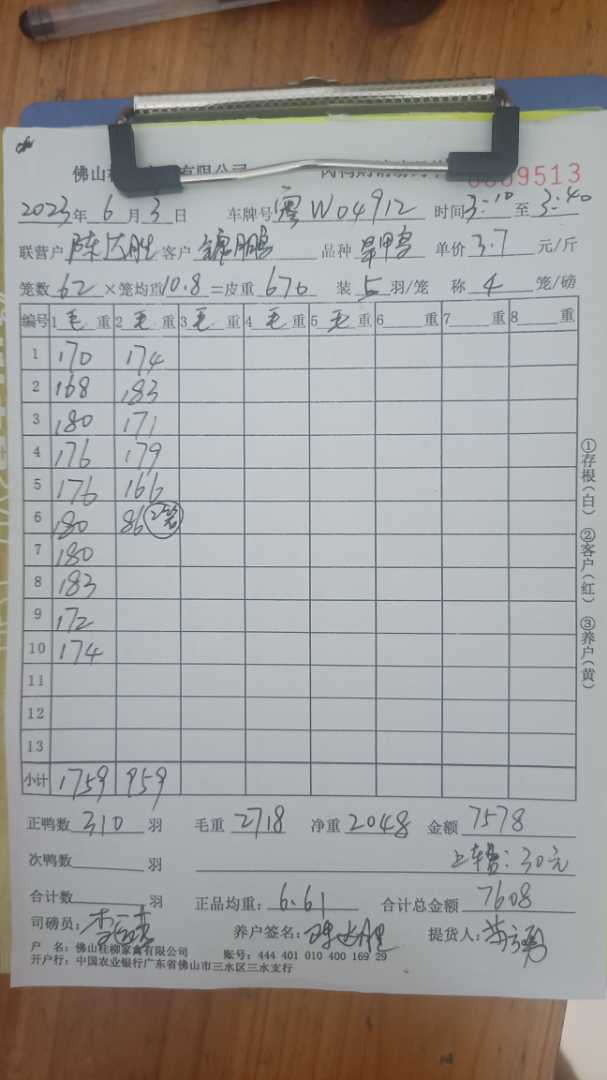 佛山 有限公司 0009513
2023年 6月 3日 车牌号 粤W04912 时间3:10 至 3:40
联营户 陈达胜 客户 品种 单价 3.7 元/斤
笼数 62 ×笼均重10.8 =皮重 670 装 5 羽/笼 称 4 笼/磅
编号 1 毛 重 2 毛 重 3 毛 重 4 毛 重 5 毛 重 6 重 7 重 8 重
1 170 174
2 168 183
3 180 171
4 176 179
5 176 166
6 180 86 2笼
7 180
8 183
9 172
10 174
11
12
13
小计 1759 959
正鸭数 310 羽 毛重 2718 净重 2048 金额 7578
次鸭数 羽 上车费:30元
合计数 羽 正品均重: 6.61 合计总金额 7608
司磅员: 养户签名: 陈达胜 提货人:
户 名:佛山桂柳家禽有限公司 账号:444 401 010 400 169 29
开户行:中国农业银行广东省佛山市三水区三水支行
①存根(白) ②客户(红) ③养户(黄)